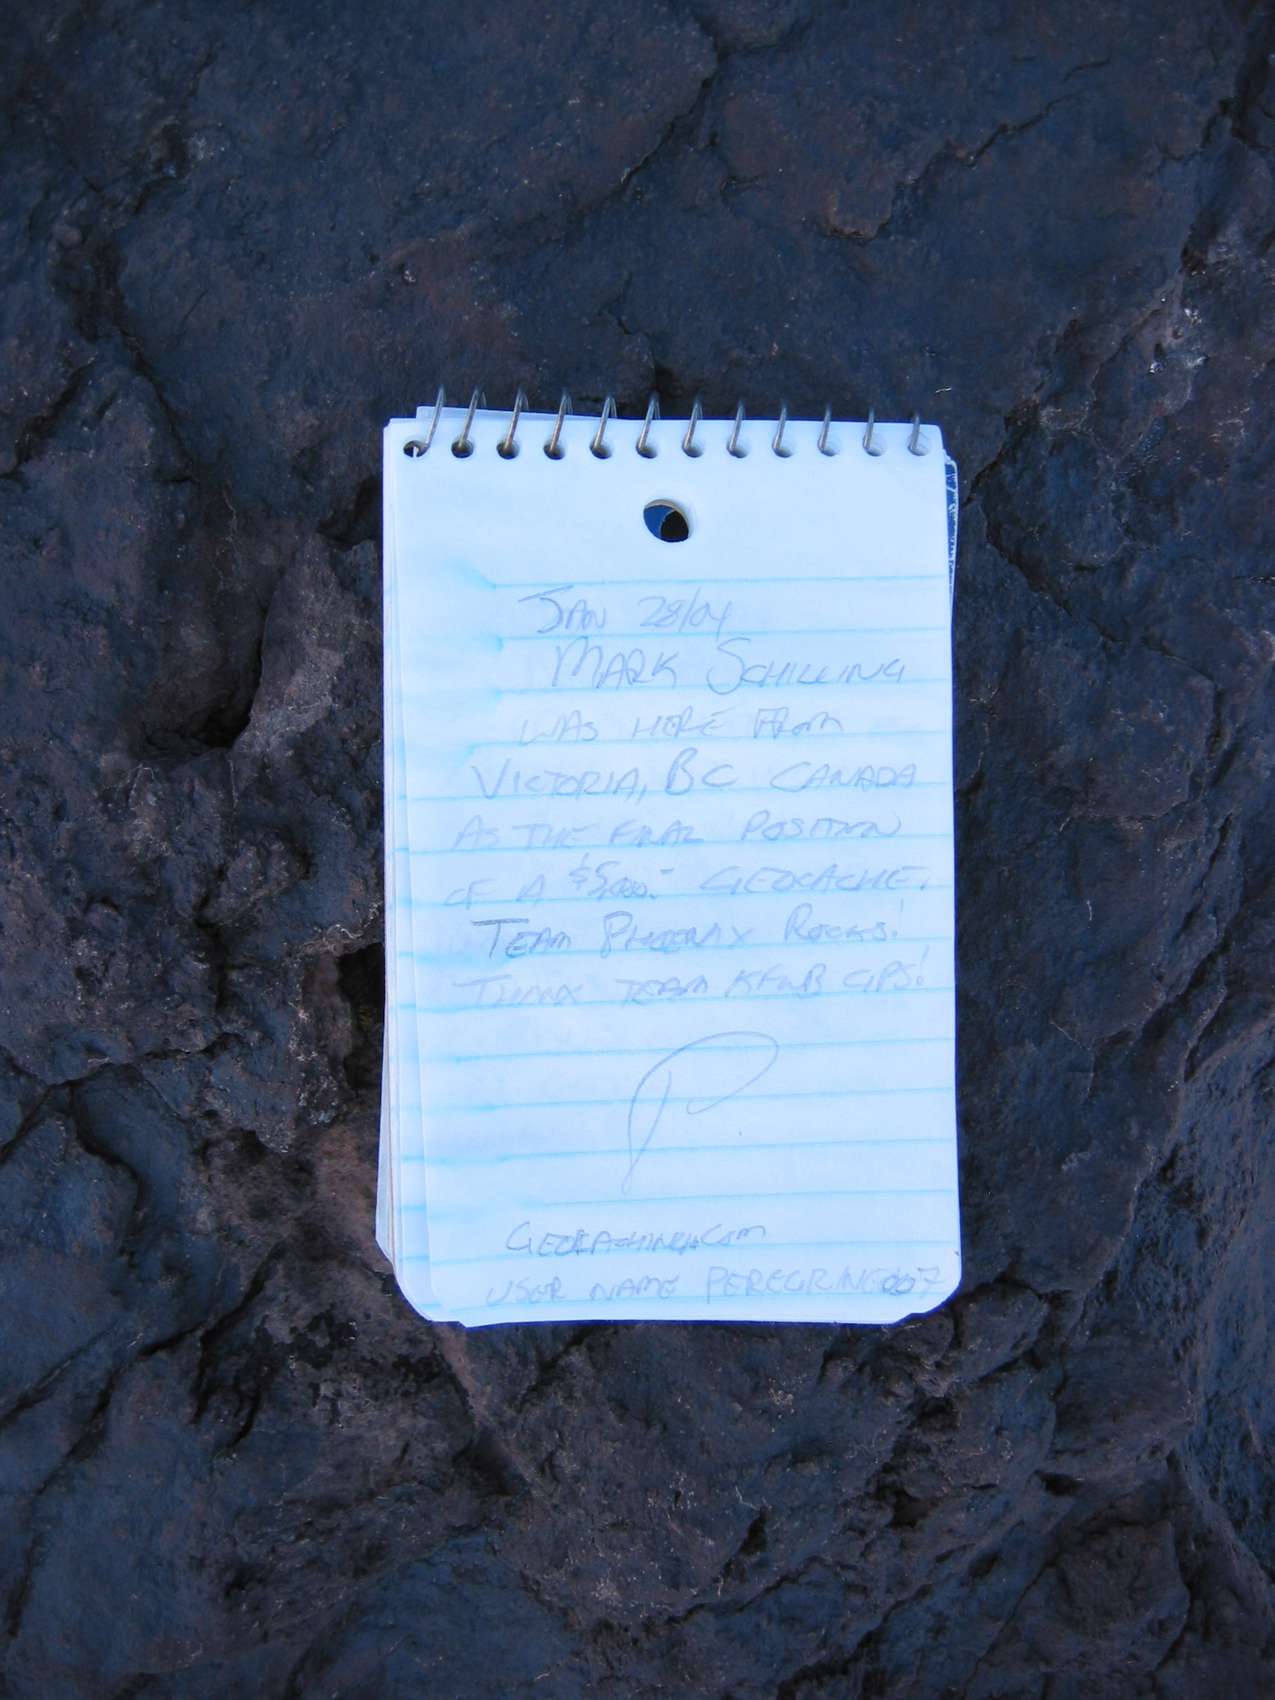 JAN 28/04
MARK SCHILLING
WAS HERE FROM
VICTORIA, BC CANADA
AS THE FINAL POSITION
OF A $5,000.- GEOCACHE.
TEAM PHOENIX ROCKS!
THANX TEAM KFWB GPS!
GEOCACHING.COM
USER NAME PEREGRINE007